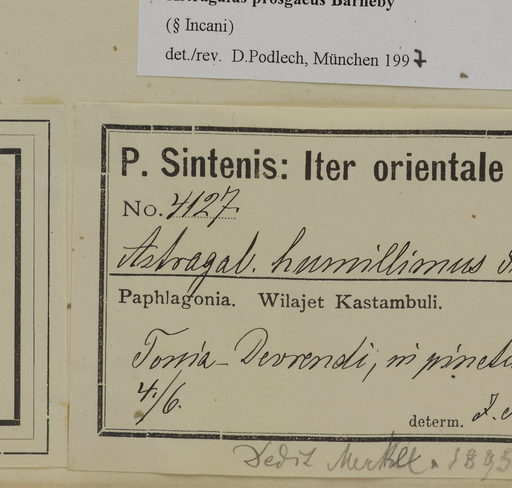 Astragalus prosgaeus Barneby
(§ Incani)
det./rev. D.Podlech, München 1997
P. Sintenis: Iter orientale
No. 4127
Astragal. humillimus
Paphlagonia. Wilajet Kastambuli.
Tossia-Devrendi, in pinetis
4/6.
determ.
Dedit 1895